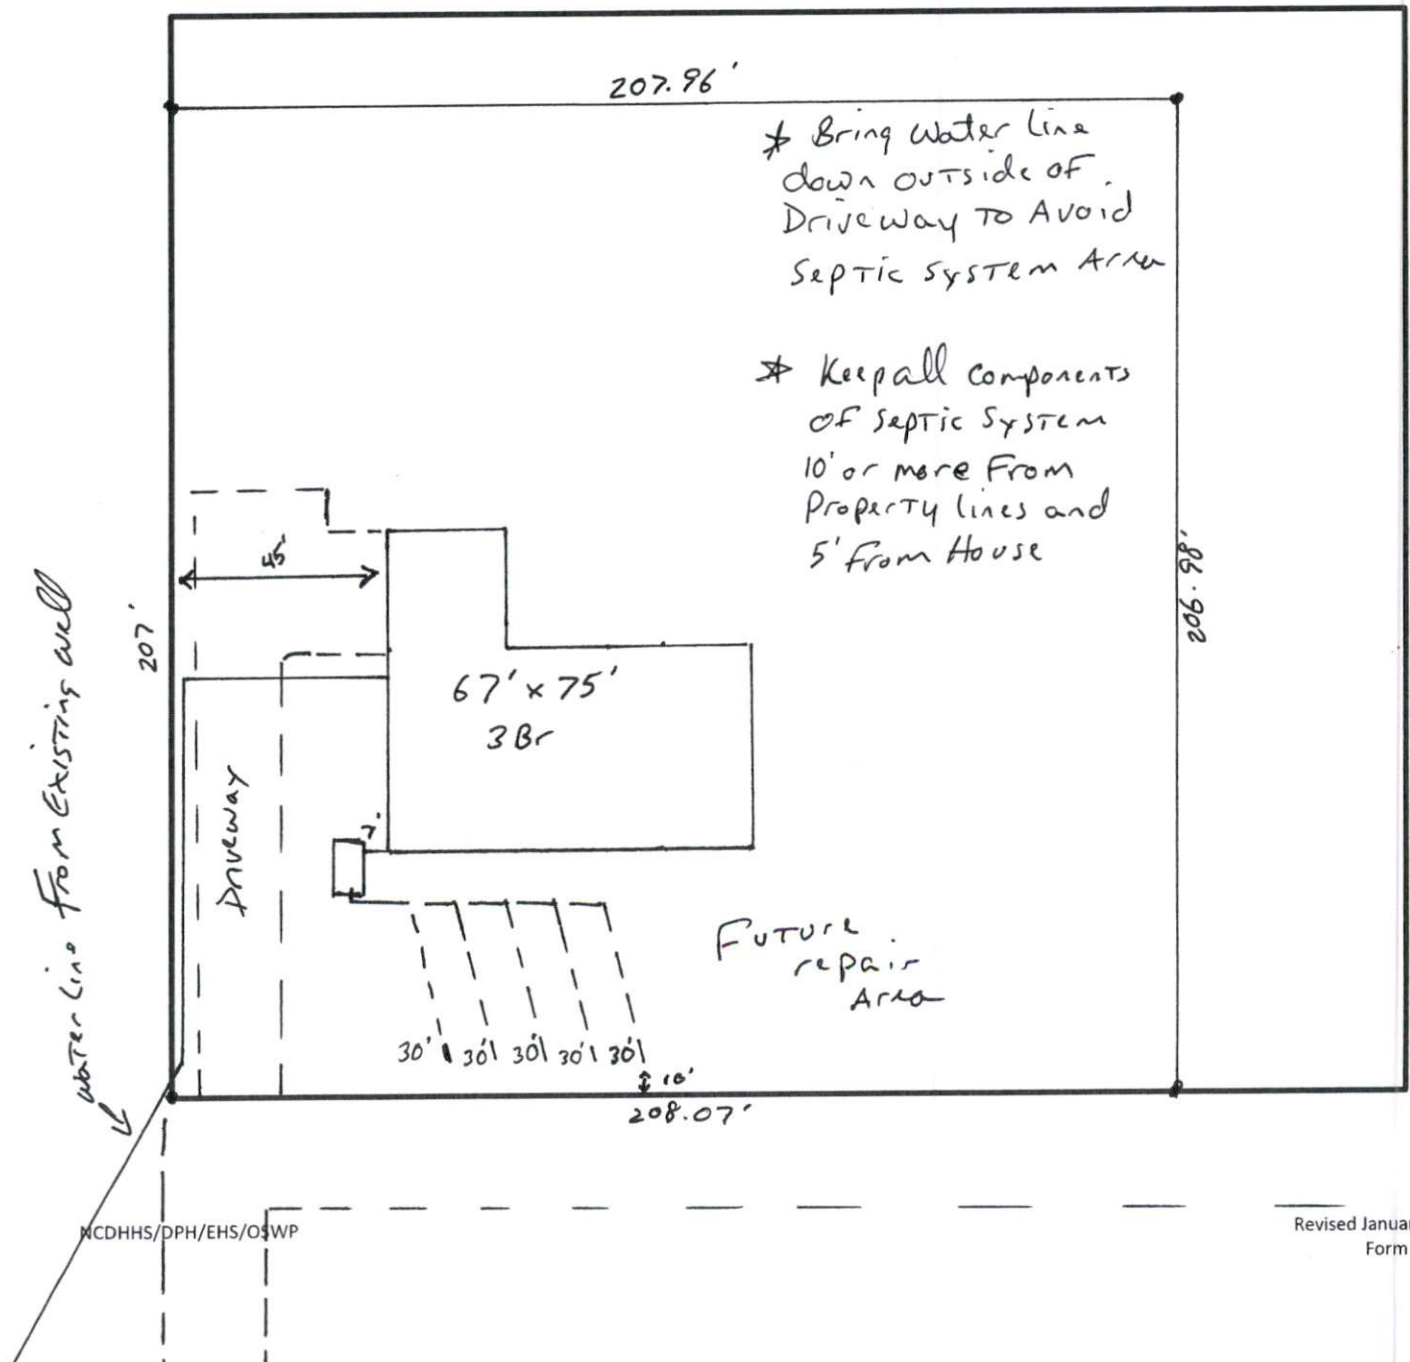 207.96'
* Bring Water Line
down outside of
Driveway To Avoid
Septic System Area
* Keep all Components
of Septic System
10' or more From
Property lines and
5' From House
45'
207'
206.98'
Water Line From Existing well
67' x 75'
3 Br
Driveway
7'
Future
repair
Area
30' 30' 30' 30' 30'
10'
208.07'
NCDHHS/DPH/EHS/OSWP
Revised Janua
Form